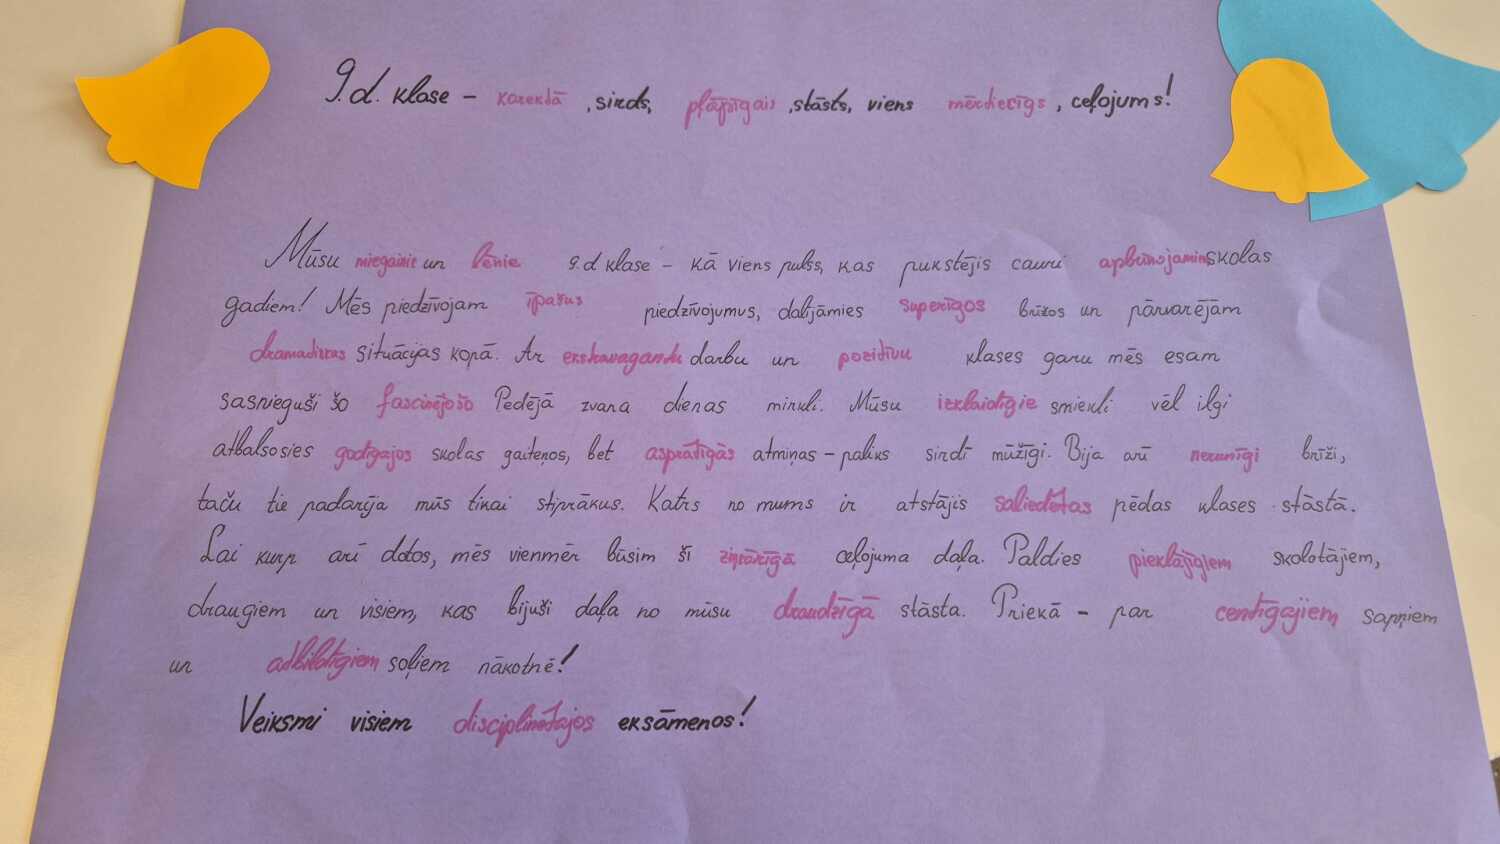 9.d. klase – korektā , sirds, pļāpīgais , stāsts, viens mērķtiecīgs , ceļojums!
Mūsu miegainie un lēnie 9.d klase – kā viens pulss, kas pukstējis cauri apbrīnojamiem skolas
gadiem! Mēs piedzīvojam īpašus piedzīvojumus, dalījāmies superīgos brīžos un pārvarējām
dramatiskas situācijas kopā. Ar ekstravagantu darbu un pozitīvu klases garu mēs esam
sasnieguši šo fascinējošo Pedējā zvana dienas mirkli. Mūsu izklaidīgie smiekli vēl ilgi
atbalsosies godīgajos skolas gaiteņos, bet aspratīgās atmiņas – paliks sirdī mūžīgi. Bija arī nerunīgi brīži,
taču tie padarīja mūs tikai stiprākus. Katrs no mums ir atstājis saliedētas pēdas klases stāstā.
Lai kurp arī dotos, mēs vienmēr būsim šī ziņkārīgā ceļojuma daļa. Paldies pieklājīgiem skolotājiem,
draugiem un visiem, kas bijuši daļa no mūsu draudzīgā stāsta. Priekā – par centīgajiem sapņiem
un atbildīgiem soļiem nākotnē!
Veiksmi visiem disciplinētajos eksāmenos!